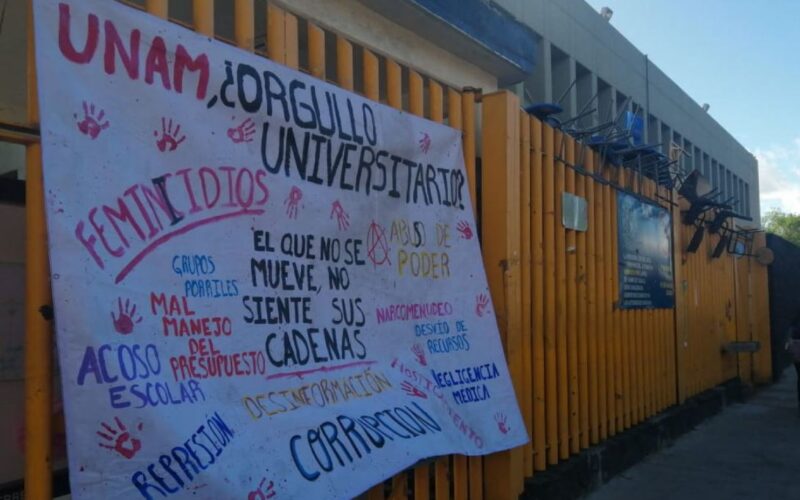 UNAM, ¿ORGULLO
UNIVERSITARIO?
FEMINICIDIOS
ABUSO DE
PODER
EL QUE NO SE
MUEVE, NO
SIENTE SUS
CADENAS
GRUPOS
PORRILES
MAL
MANEJO
DEL
PRESUPUESTO
NARCOMENUDEO
DESVIO DE
RECURSOS
ACOSO
ESCOLAR
DESINFORMACIÓN
HOSTIGAMIENTO
NEGLIGENCIA
MEDICA
REPRESIÓN
CORRUPCION